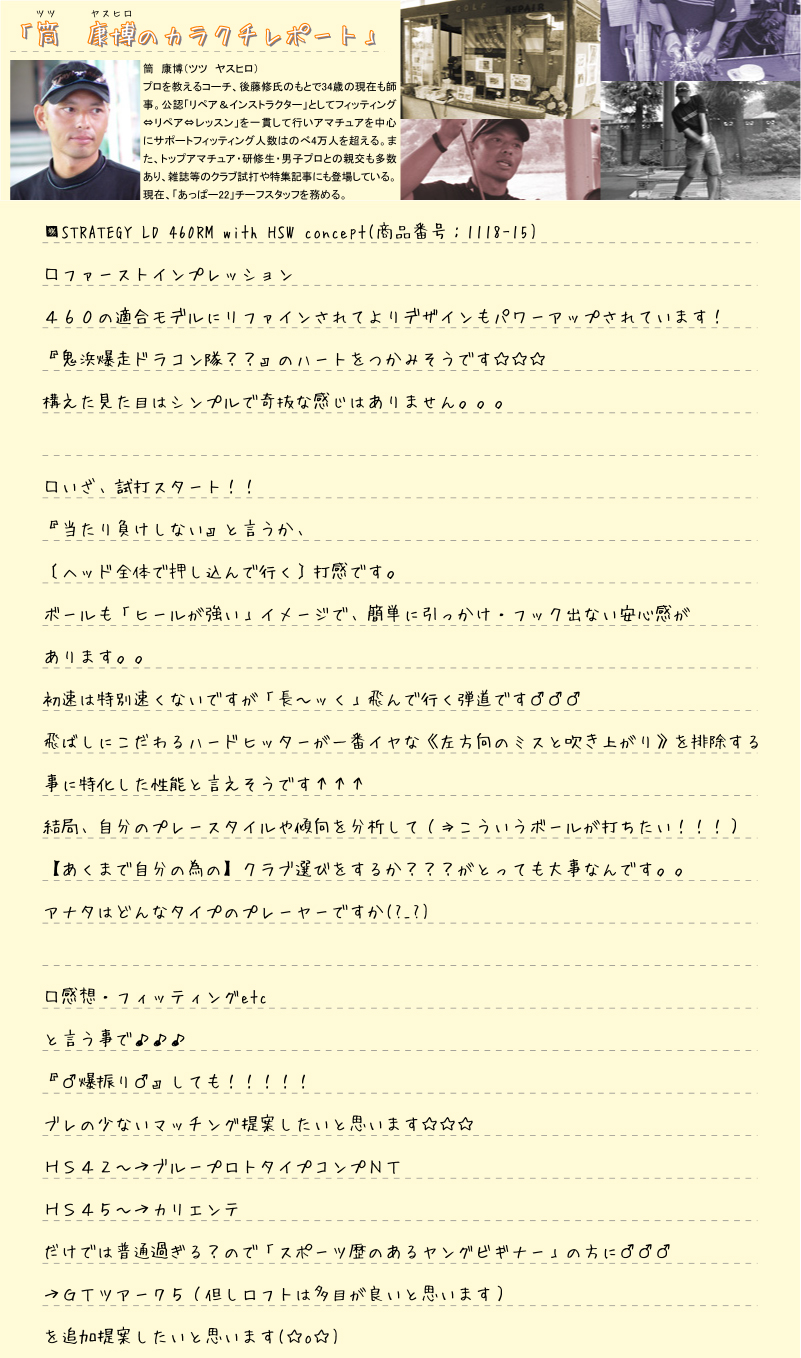 ツツ ヤスヒロ
「筒 康博のカラクチレポート」
筒 康博(ツツ ヤスヒロ)
プロを教えるコーチ、後藤修氏のもとで34歳の現在も師
事。公認「リペア＆インストラクター」としてフィッティング
⇔リペア⇔レッスン」を一貫して行いアマチュアを中心
にサポートフィッティング人数はのべ4万人を超える。ま
た、トップアマチュア・研修生・男子プロとの親交も多数
あり、雑誌等のクラブ試打や特集記事にも登場している。
現在、「あっぱー22」チーフスタッフを務める。
REPAIR
STRATEGY LD 460RM with HSW concept(商品番号：1118-15)
□ファーストインプレッション
４６０の適合モデルにリファインされてよりデザインもパワーアップされています！
『鬼浜爆走ドラコン隊？？』のハートをつかみそうです☆☆☆
構えた見た目はシンプルで奇抜な感じはありません。。。
□いざ、試打スタート！！
『当たり負けしない』と言うか、
〔ヘッド全体で押し込んで行く〕打感です。
ボールも「ヒールが強い」イメージで、簡単に引っかけ・フック出ない安心感が
あります。。
初速は特別速くないですが「長～ッく」飛んで行く弾道です♂♂♂
飛ばしにこだわるハードヒッターが一番イヤな《左方向のミスと吹き上がり》を排除する
事に特化した性能と言えそうです↑↑↑
結局、自分のプレースタイルや傾向を分析して（⇒こういうボールが打ちたい！！！）
【あくまで自分の為の】クラブ選びをするか？？？がとっても大事なんです。。
アナタはどんなタイプのプレーヤーですか(?_?)
□感想・フィッティングetc
と言う事で♪♪♪
『♂爆振り♂』しても！！！！！
ブレの少ないマッチング提案したいと思います☆☆☆
ＨＳ４２～→ブループロトタイプコンプＮＴ
ＨＳ４５～→カリエンテ
だけでは普通過ぎる？ので「スポーツ歴のあるヤングビギナー」の方に♂♂♂
→ＧＴツアー７５（但しロフトは多目が良いと思います）
を追加提案したいと思います(☆o☆)